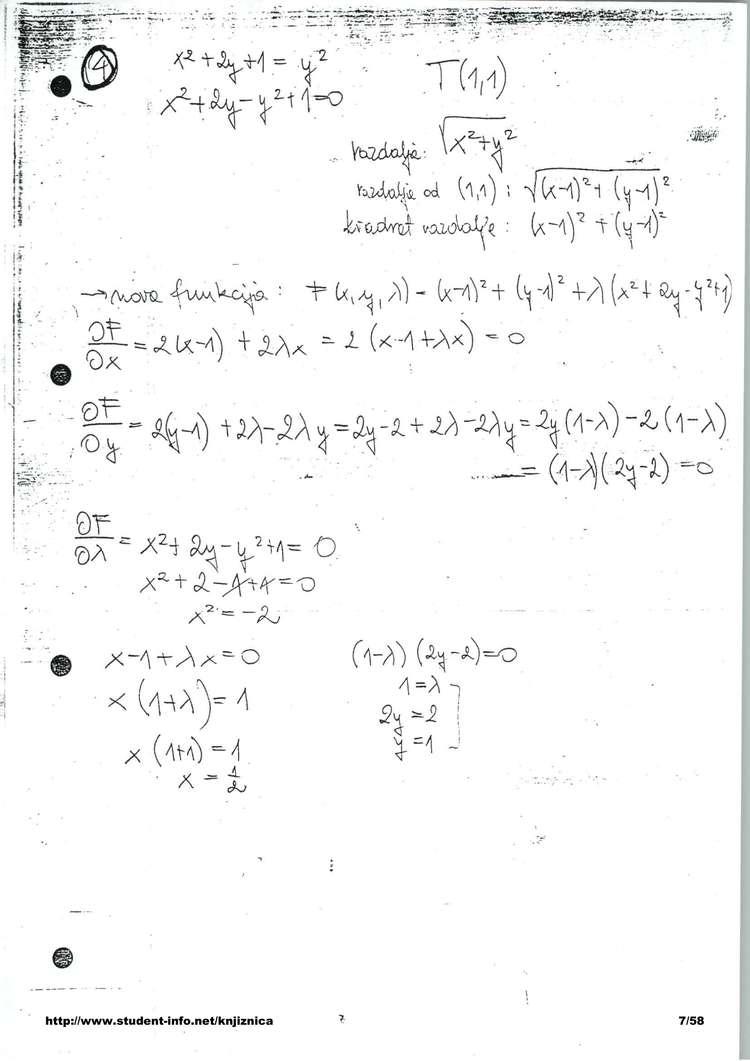 4
x² + 2y + 1 = y²
x² + 2y - y² + 1 = 0
T(1,1)
razdalja: √(x² + y²)
razdalja od (1,1): √((x-1)² + (y-1)²)
kvadrat razdalje: (x-1)² + (y-1)²
→ nova funkcija: F(x, y, λ) = (x-1)² + (y-1)² + λ(x² + 2y - y² + 1)
∂F/∂x = 2(x-1) + 2λx = 2(x-1+λx) = 0
∂F/∂y = 2(y-1) + 2λ - 2λy = 2y - 2 + 2λ - 2λy = 2y(1-λ) - 2(1-λ)
= (1-λ)(2y-2) = 0
∂F/∂λ = x² + 2y - y² + 1 = 0
x² + 2 - 1 + 1 = 0
x² = -2
x - 1 + λx = 0
x(1+λ) = 1
x(1+1) = 1
x = 1/2
(1-λ)(2y-2) = 0
1 = λ
2y = 2
y = 1
http://www.student-info.net/knjiznica
7
7/58